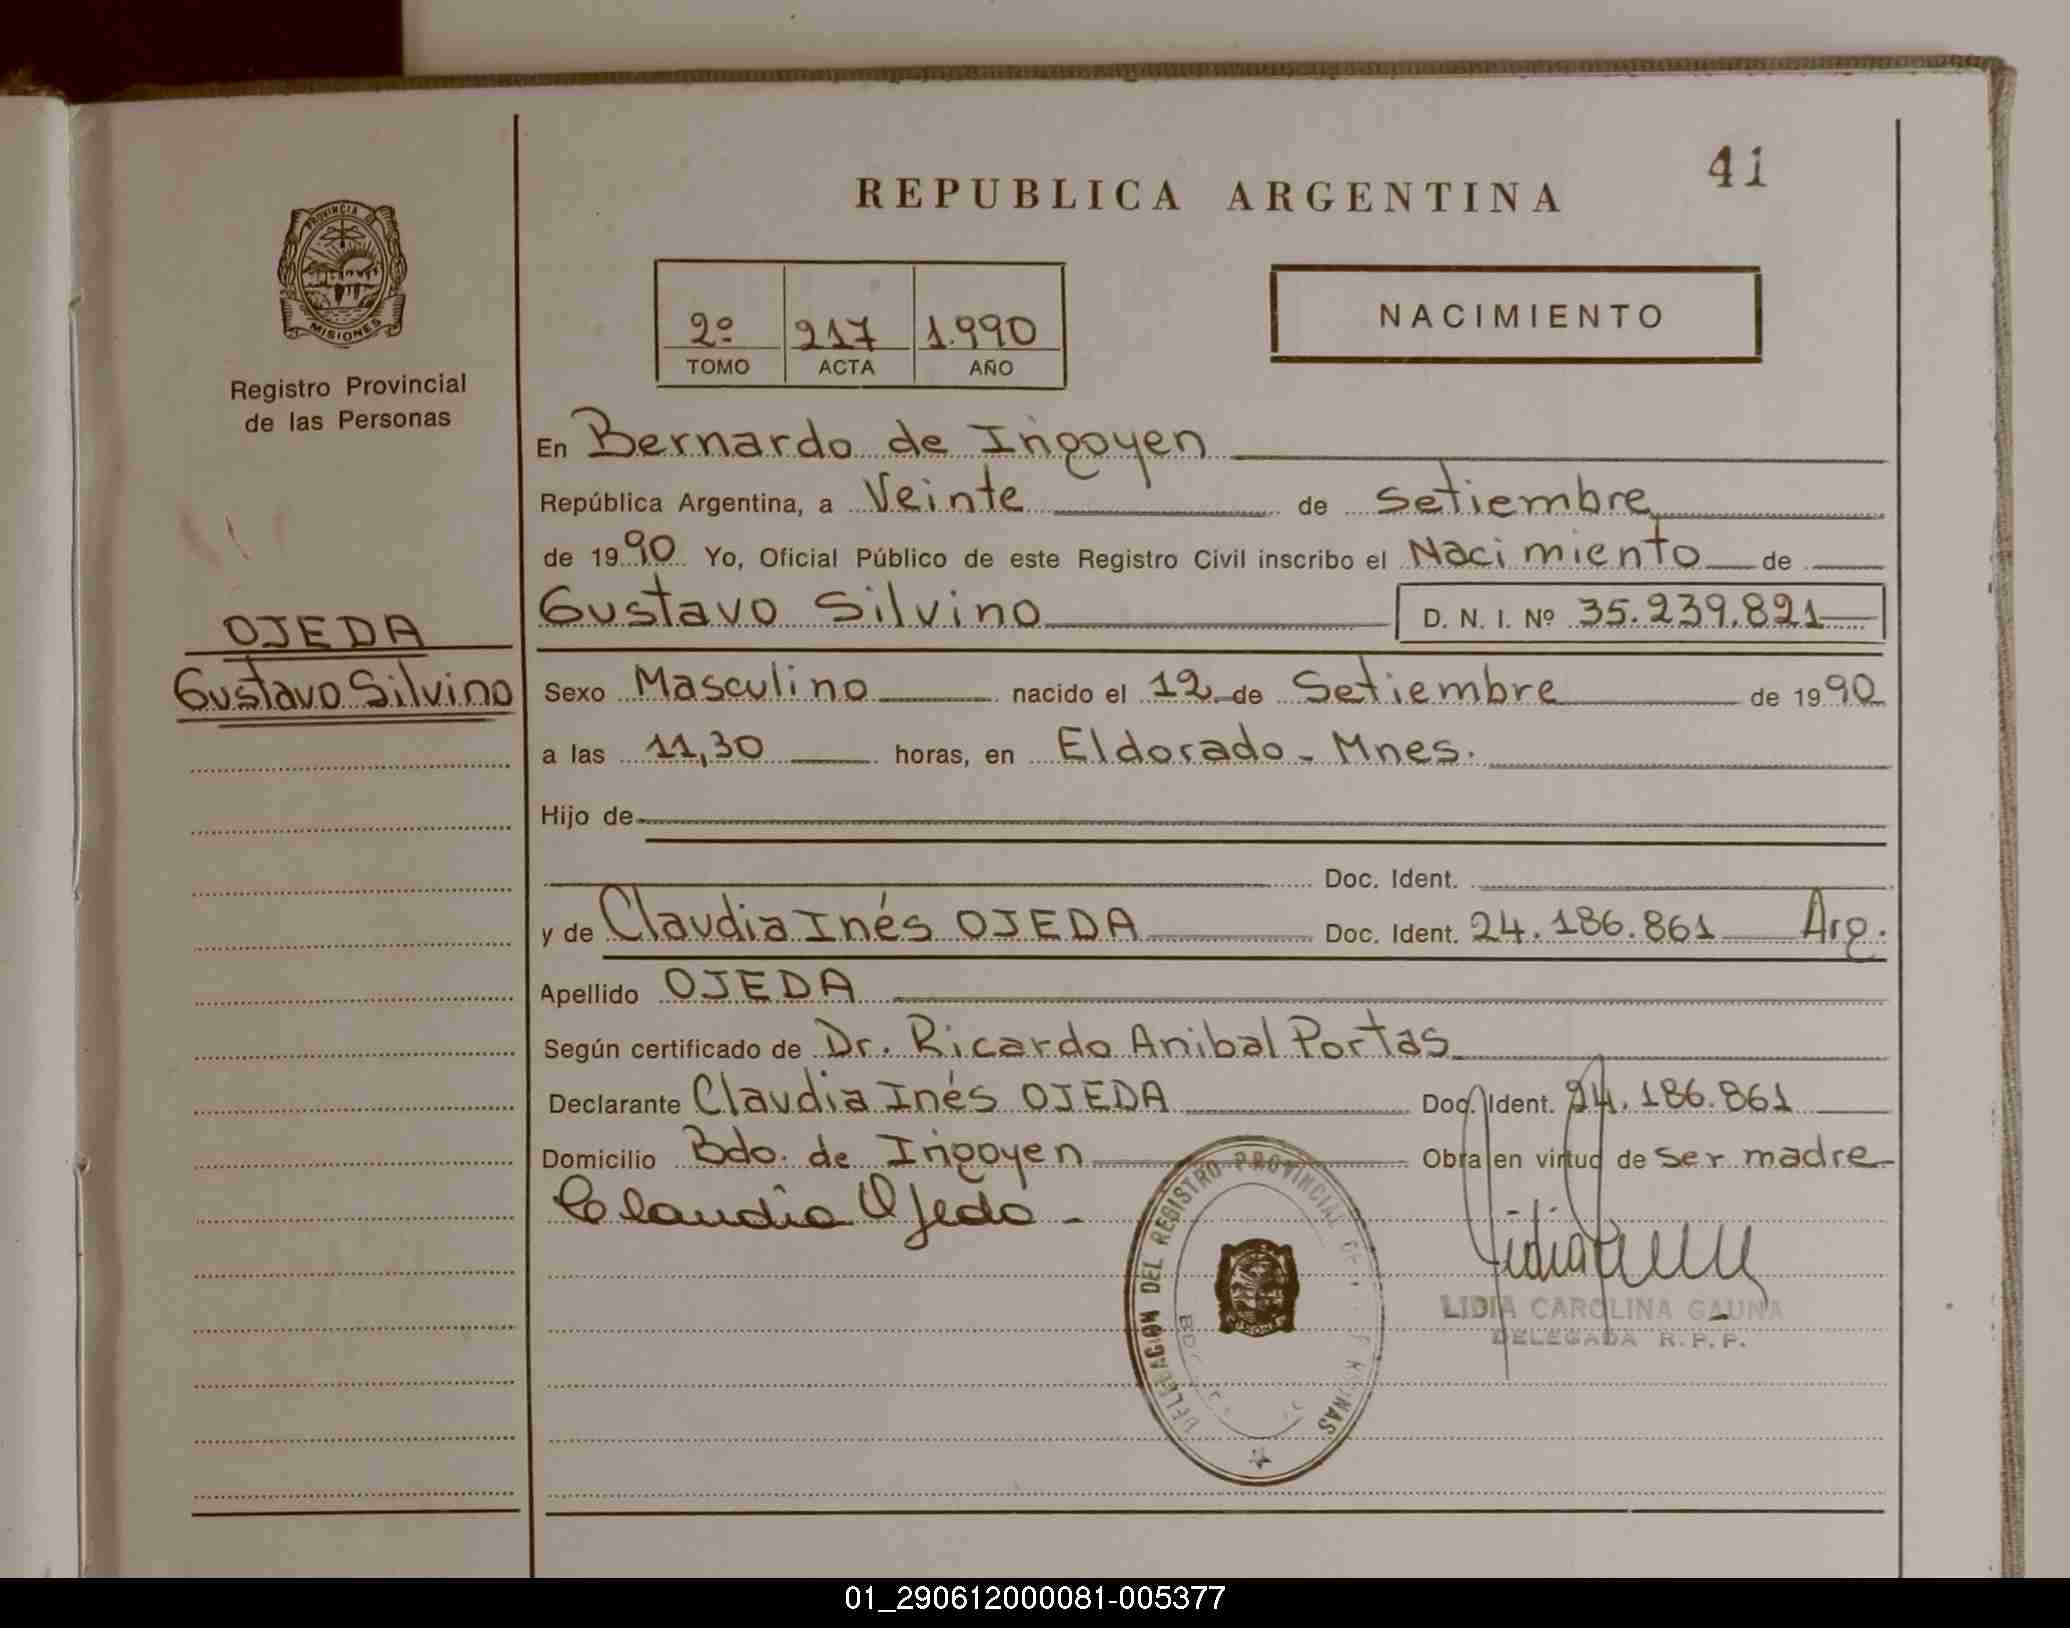 REPUBLICA ARGENTINA
41
PROVINCIA DE
MISIONES
Registro Provincial
de las Personas
2º 217 1.990
TOMO ACTA AÑO
NACIMIENTO
En Bernardo de Irigoyen
República Argentina, a Veinte de Setiembre
de 1990 Yo, Oficial Público de este Registro Civil inscribo el Nacimiento de
Gustavo Silvino D. N. I. Nº 35.239.821
OJEDA
Gustavo Silvino
Sexo Masculino nacido el 12 de Setiembre de 1990
a las 11,30 horas, en Eldorado - Mnes.
Hijo de
Doc. Ident.
y de Claudia Inés OJEDA Doc. Ident. 24.186.861 Arg.
Apellido OJEDA
Según certificado de Dr. Ricardo Anibal Portas
Declarante Claudia Inés OJEDA Doc. Ident. 24.186.861
Domicilio Bdo. de Irigoyen Obra en virtud de ser madre
Claudia Ojeda -
DELEGACION DEL REGISTRO PROVINCIAL DE
LIDIA CAROLINA GAUNA
DELEGADA R.P.P.
01_290612000081-005377